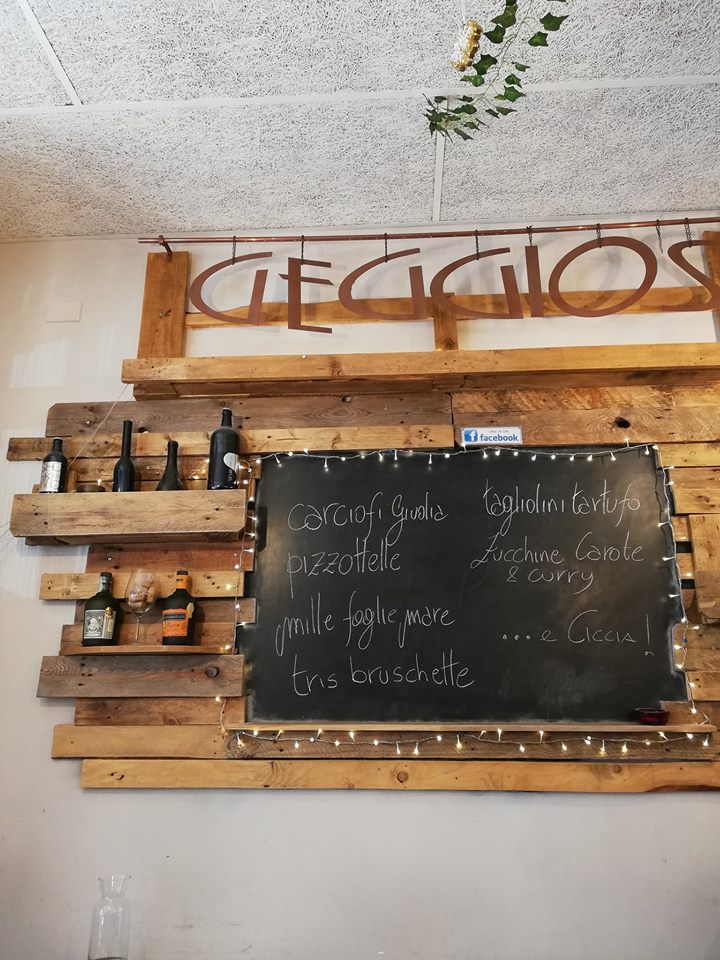 GEGGIO'S
LIKE US ON
facebook
carciofi Giudia
pizzottelle
mille foglie mare
tris bruschette
tagliolini tartufo
Zucchine Carote
& curry
... e CICCIA!